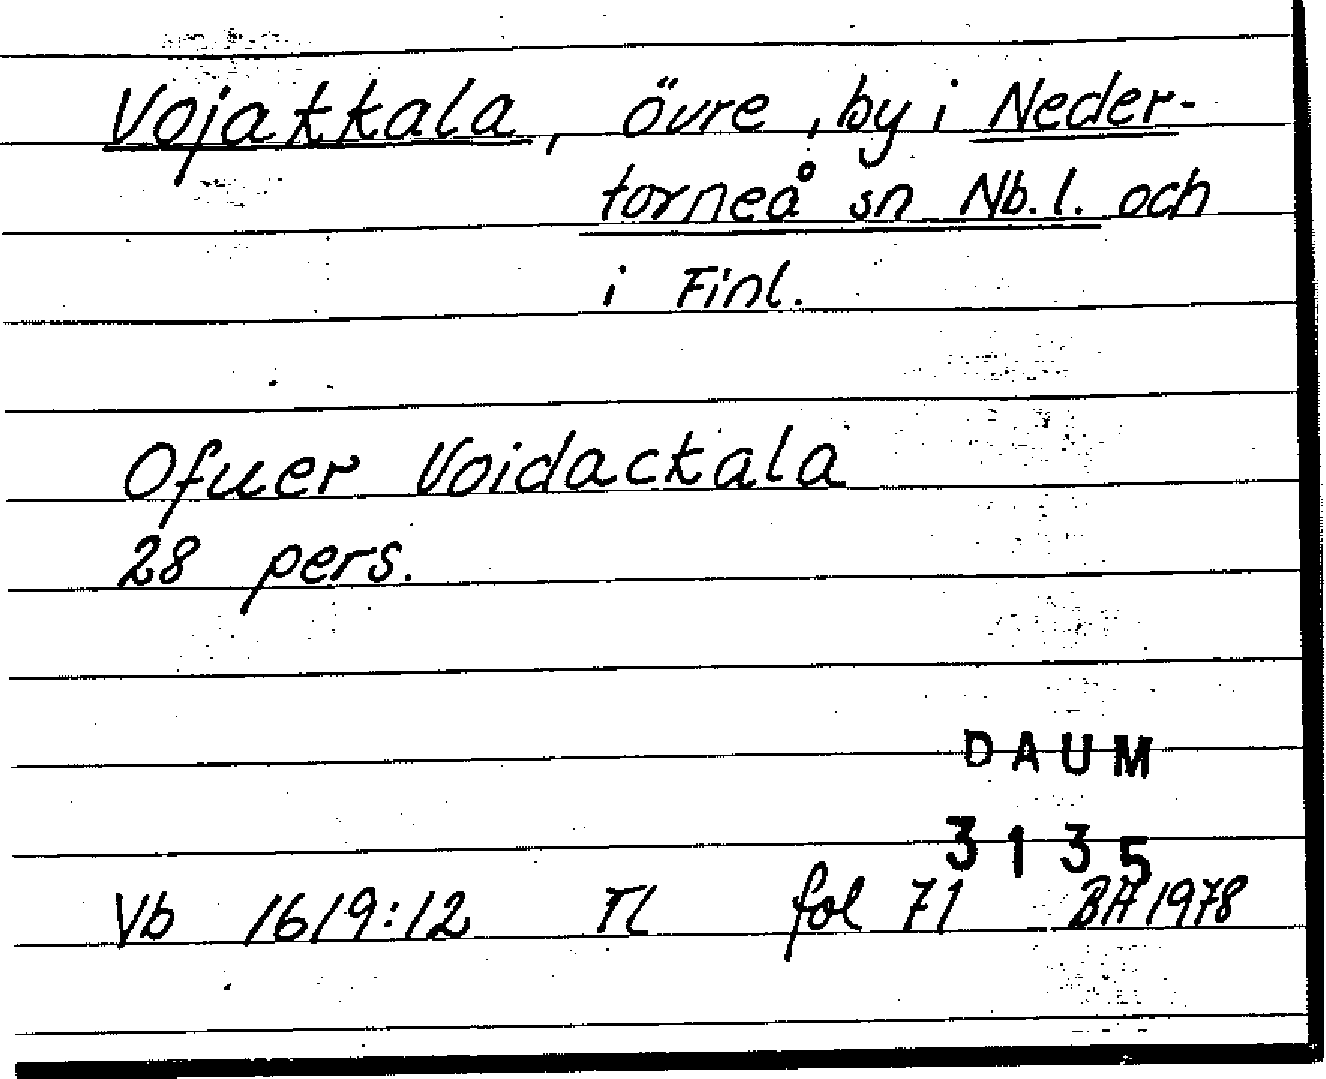 Vojakkala, övre, by i Neder-
torneå sn Nb. l. och
i Finl.
Ofuer Voidackala
28 pers.
DAUM
3135
Vb 1619:12 TL fol 71 BH 1978